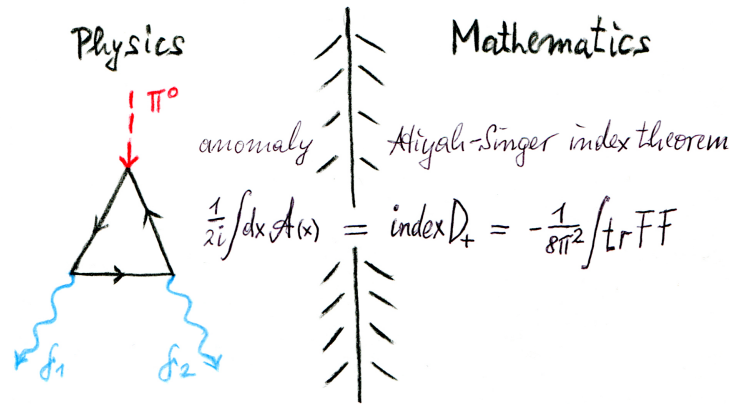 Physics
Mathematics
π⁰
anomaly
Atiyah-Singer index theorem
1/2i ∫dx A(x) = index D₊ = -1/8π² ∫tr F F
γ₁
γ₂